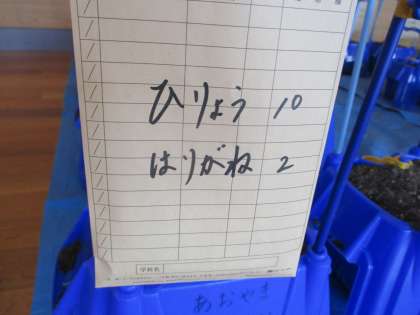 ひりょう 10
はりがね 2
学級名
あおやま